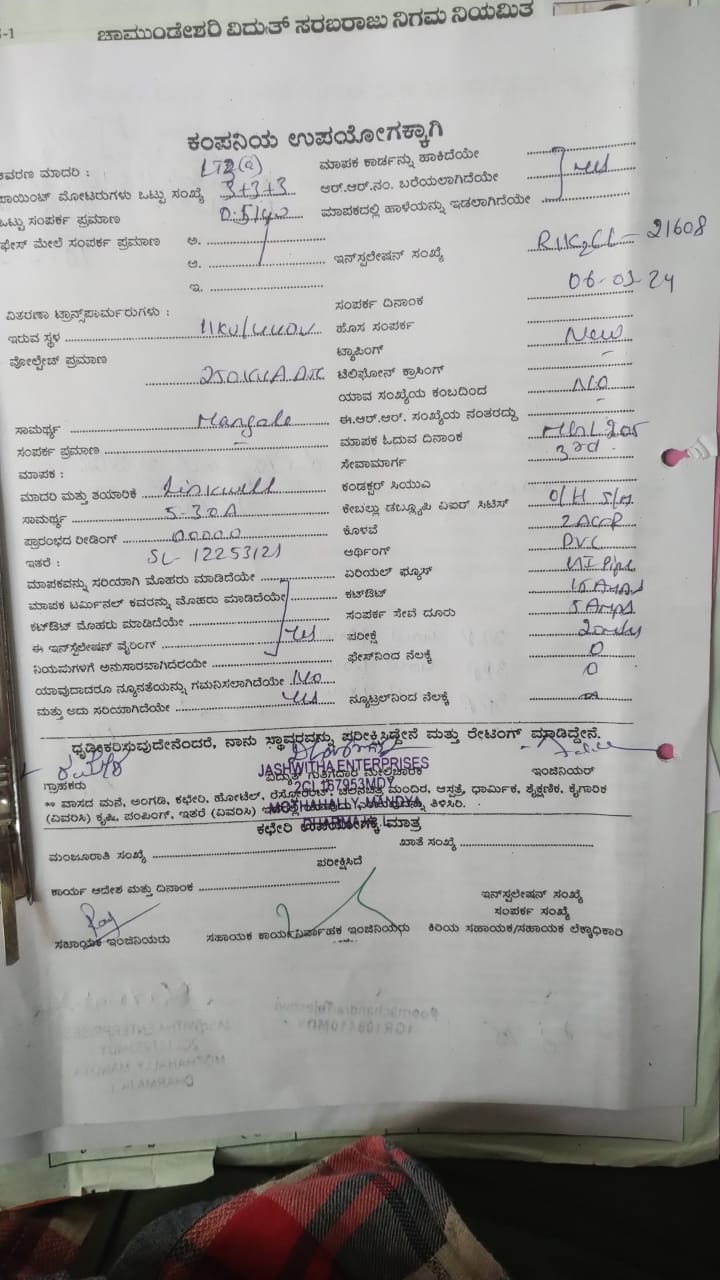 -1
ಚಾಮುಂಡೇಶ್ವರಿ ವಿದ್ಯುತ್ ಸರಬರಾಜು ನಿಗಮ ನಿಯಮಿತ
ಕಂಪನಿಯ ಉಪಯೋಗಕ್ಕಾಗಿ
ಆವರಣ ಮಾದರಿ : LT2(a) ಮಾಪಕ ಕಾರ್ಡನ್ನು ಹಾಕಿದೆಯೇ
ಪಾಯಿಂಟ್ ಮೋಟರುಗಳು ಒಟ್ಟು ಸಂಖ್ಯೆ 3+3+3 ಆರ್.ಆರ್.ನಂ. ಬರೆಯಲಾಗಿದೆಯೇ yes
ಒಟ್ಟು ಸಂಪರ್ಕ ಪ್ರಮಾಣ ಮಾಪಕದಲ್ಲಿ ಹಾಳೆಯನ್ನು ಇಡಲಾಗಿದೆಯೇ
ಫೇಸ್ ಮೇಲೆ ಸಂಪರ್ಕ ಪ್ರಮಾಣ ಅ.
ಆ. ಇನ್‌ಸ್ಪಲೇಷನ್ ಸಂಖ್ಯೆ 21608
ಇ. 06-03-24
ವಿತರಣಾ ಟ್ರಾನ್ಸ್‌ಪಾರ್ಮರುಗಳು : ಸಂಪರ್ಕ ದಿನಾಂಕ
ಇರುವ ಸ್ಥಳ ಹೊಸ ಸಂಪರ್ಕ New
ವೋಲ್ಟೇಜ್ ಪ್ರಮಾಣ ಟ್ಯಾಪಿಂಗ್ -
250KVA ಟೆಲಿಫೋನ್ ಕ್ರಾಸಿಂಗ್ NO
ಯಾವ ಸಂಖ್ಯೆಯ ಕಂಬದಿಂದ -
ಸಾಮರ್ಥ್ಯ Mangala ಈ.ಆರ್.ಆರ್. ಸಂಖ್ಯೆಯ ನಂತರದ್ದು
ಸಂಪರ್ಕ ಪ್ರಮಾಣ - ಮಾಪಕ ಓದುವ ದಿನಾಂಕ 3rd
ಮಾಪಕ : ಸೇವಾಮಾರ್ಗ
ಮಾದರಿ ಮತ್ತು ತಯಾರಿಕೆ Linkwell ಕಂಡಕ್ಟರ್ ಸಿಯುಎ
ಸಾಮರ್ಥ್ಯ 5-30A ಕೇಬಲ್ಲು ಡಬ್ಲ್ಯೂಪಿ ವಿಐರ್ ಸಿಟಿಸ್ O/H
ಪ್ರಾರಂಭದ ರೀಡಿಂಗ್ 00000 ಕೊಳವೆ
ಇತರೆ : SL-12253121 ಅರ್ಥಿಂಗ್ PVC
ಮಾಪಕವನ್ನು ಸರಿಯಾಗಿ ಮೊಹರು ಮಾಡಿದೆಯೇ ಏರಿಯಲ್ ಫ್ಯೂಸ್ GI Pipe
ಮಾಪಕ ಟರ್ಮಿನಲ್ ಕವರನ್ನು ಮೊಹರು ಮಾಡಿದೆಯೇ ಕಟ್‌ಔಟ್ 15 Amps
ಕಟ್‌ಔಟ್ ಮೊಹರು ಮಾಡಿದೆಯೇ ಸಂಪರ್ಕ ಸೇವೆ ದೂರು 5 Amps
ಈ ಇನ್‌ಸ್ಪಲೇಷನ್ ವೈರಿಂಗ್ yes ಪರೀಕ್ಷೆ
ನಿಯಮಗಳಿಗೆ ಅನುಸಾರವಾಗಿದೆರಯೇ ಫೇಸ್‌ನಿಂದ ನೆಲಕ್ಕೆ 0
ಯಾವುದಾದರೂ ನ್ಯೂನತೆಯನ್ನು ಗಮನಿಸಲಾಗಿದೆಯೇ No 0
ಮತ್ತು ಅದು ಸರಿಯಾಗಿದೆಯೇ yes ನ್ಯೂಟ್ರಲ್‌ನಿಂದ ನೆಲಕ್ಕೆ
ಧೃಡೀಕರಿಸುವುದೇನೆಂದರೆ, ನಾನು ಸ್ಥಾವರವನ್ನು ಪರೀಕ್ಷಿಸಿದ್ದೇನೆ ಮತ್ತು ರೇಟಿಂಗ್ ಮಾಡಿದ್ದೇನೆ.
JASHWITHA ENTERPRISES
ಗ್ರಾಹಕರು ವಿದ್ಯುತ್ ಗುತ್ತಿಗೆದಾರ ಮೇಲಿಚಾರಕ ಇಂಜಿನಿಯರ್
2CL167953MDY
** ವಾಸದ ಮನೆ, ಅಂಗಡಿ, ಕಛೇರಿ, ಹೋಟೆಲ್, ರೆಸ್ಟೋರೆಂಟ್, ಚಲನಚಿತ್ರ ಮಂದಿರ, ಆಸ್ಪತ್ರೆ, ಧಾರ್ಮಿಕ, ಶೈಕ್ಷಣಿಕ, ಕೈಗಾರಿಕ
MOTHAHALLY, MANDYA
(ವಿವರಿಸಿ) ಕೃಷಿ, ಪಂಪಿಂಗ್, ಇತರೆ (ವಿವರಿಸಿ) ತಿಳಿಸಿರಿ.
ಕಛೇರಿ ಉಪಯೋಗಕ್ಕೆ ಮಾತ್ರ
ಮಂಜೂರಾತಿ ಸಂಖ್ಯೆ ಖಾತೆ ಸಂಖ್ಯೆ
ಪರೀಕ್ಷಿಸಿದೆ
ಕಾರ್ಯ ಆದೇಶ ಮತ್ತು ದಿನಾಂಕ
ಇನ್‌ಸ್ಪಲೇಷನ್ ಸಂಖ್ಯೆ
ಸಂಪರ್ಕ ಸಂಖ್ಯೆ
ಸಹಾಯಕ ಇಂಜಿನಿಯರು ಸಹಾಯಕ ಕಾರ್ಯನಿರ್ವಾಹಕ ಇಂಜಿನಿಯರು ಕಿರಿಯ ಸಹಾಯಕ/ಸಹಾಯಕ ಲೆಕ್ಕಾಧಿಕಾರಿ